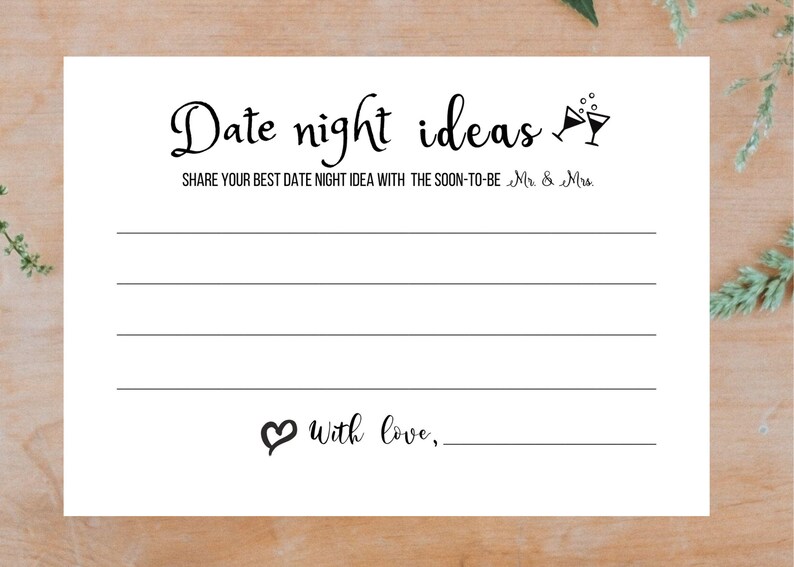 Date night ideas
SHARE YOUR BEST DATE NIGHT IDEA WITH THE SOON-TO-BE Mr. & Mrs.
With love,